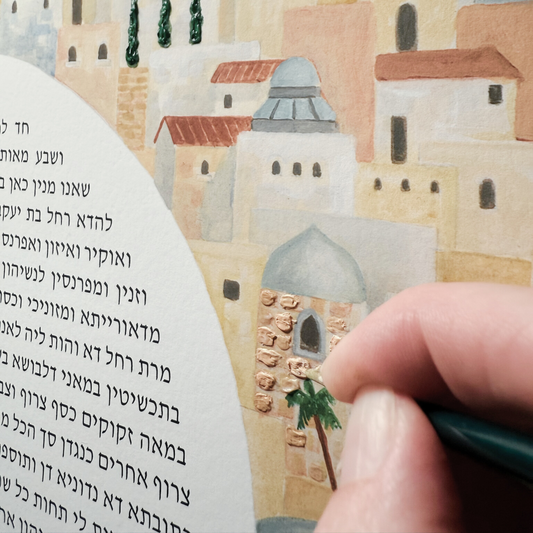 חד
ושבע מאות
שאנו מנין כאן
להדא רחל בת יעקב
ואוקיר ואיזון ואפרנס
וזנין ומפרנסין לנשיהון
מדאורייתא ומזוניכי וכסו
מרת רחל דא והות ליה לאנ
בתכשיטין במאני דלבושא
במאה זקוקים כסף צרוף וצב
צרוף אחרים כנגדן סך הכל
כתובתא דא נדוניא דן ותוספ
לי תחות כל